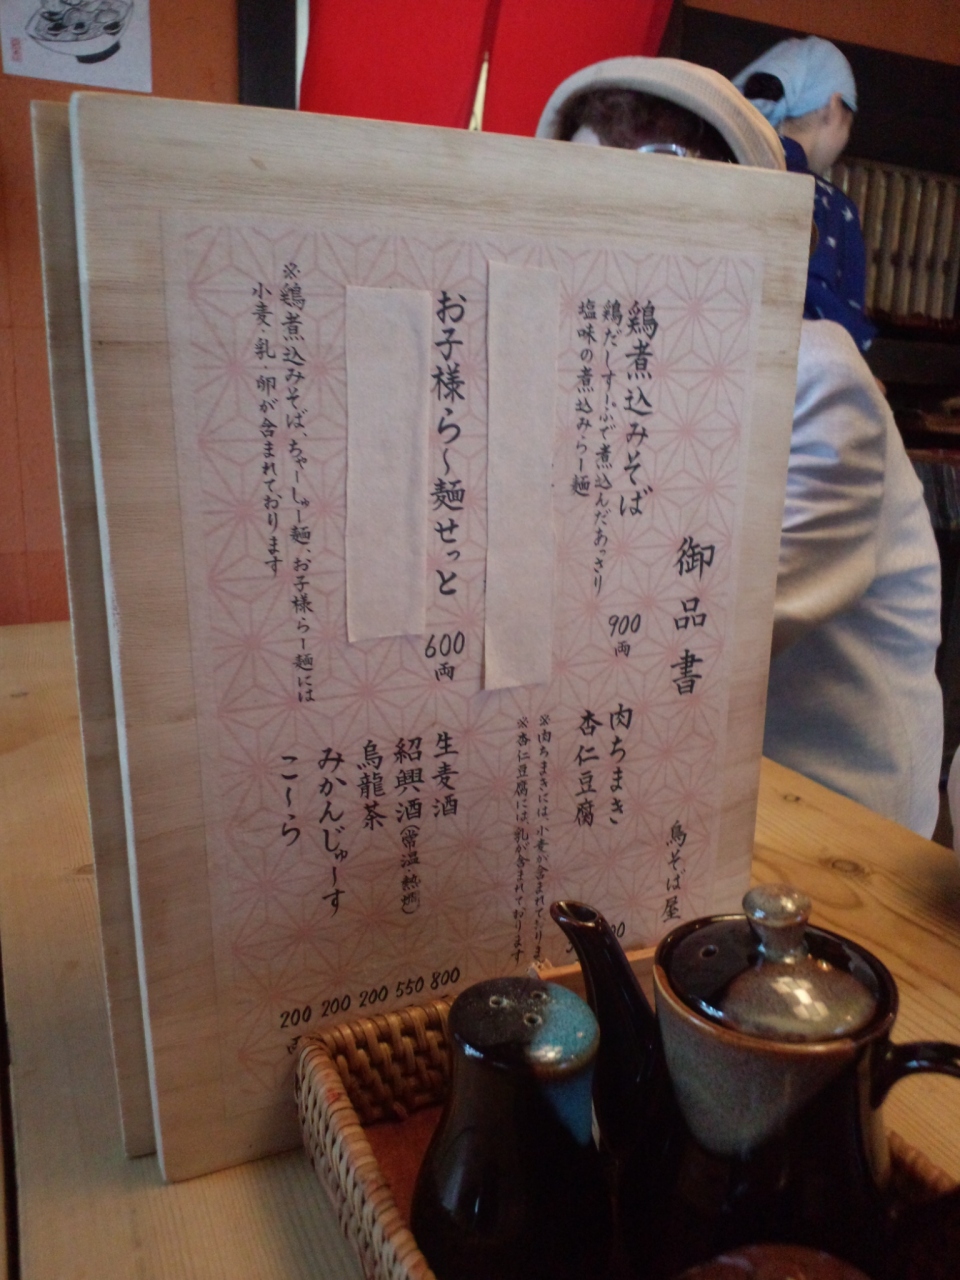 御品書
鳥そば屋
鶏煮込みそば
鶏だしすーぷで煮込んだあっさり
塩味の煮込みらー麺
900両
お子様ら〜麺せっと
600両
※鶏煮込みそば、ちゃーしゅー麺、お子様らー麺には
小麦・乳・卵が含まれております
肉ちまき
杏仁豆腐
※肉ちまきには、小麦が含まれております
※杏仁豆腐には、乳が含まれております
生麦酒 800
紹興酒(常温・熱燗) 550
烏龍茶 200
みかんじゅーす 200
こ〜ら 200